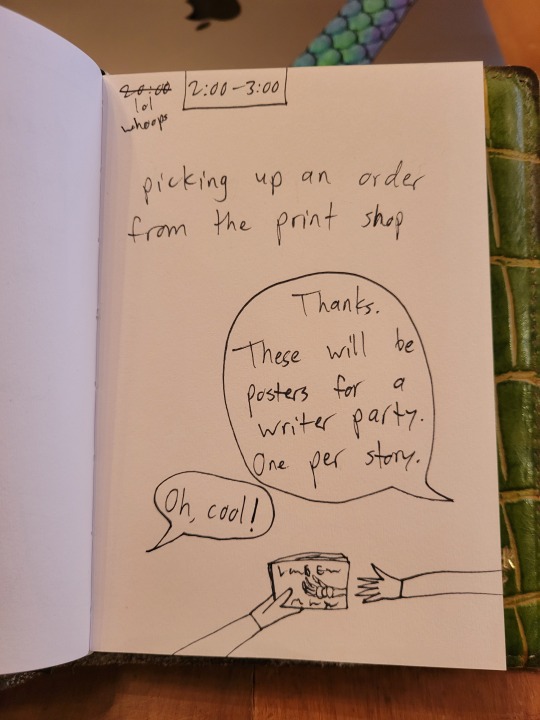 20:00
lol
whoops
2:00-3:00
picking up an order
from the print shop
Thanks.
These will be
posters for a
writer party.
One per story.
Oh, cool!